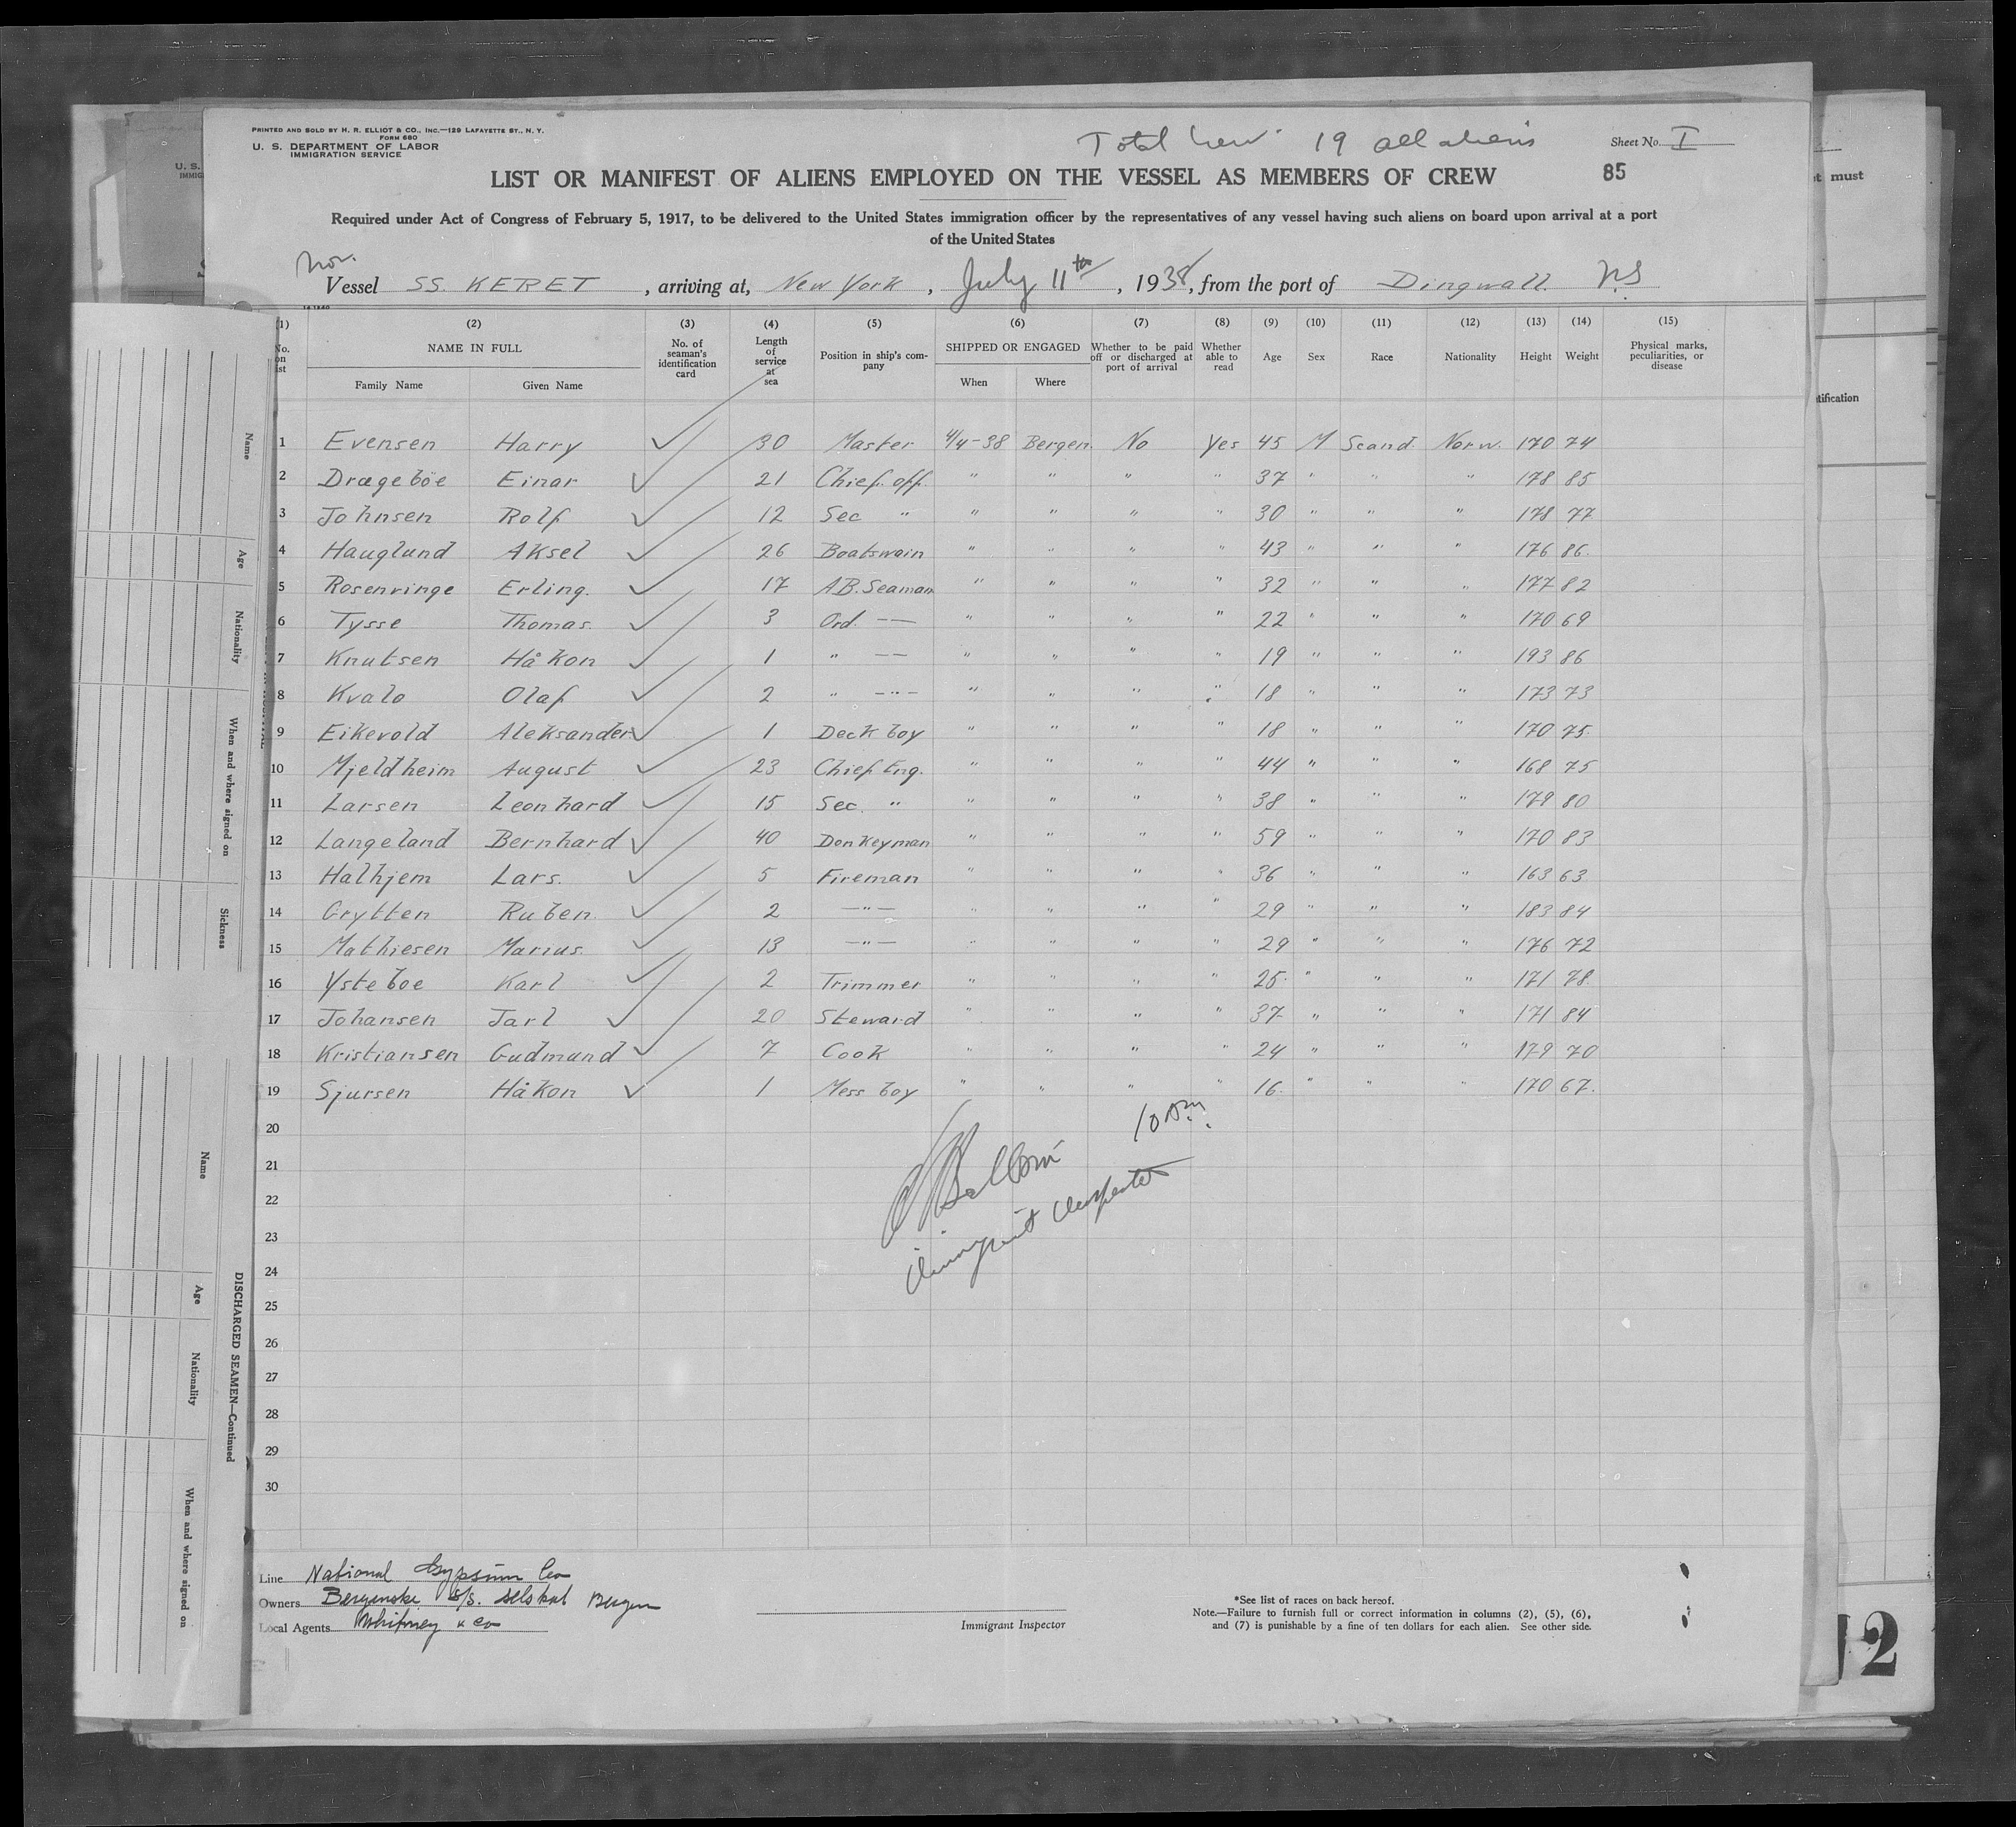 PRINTED AND SOLD BY H. R. ELLIOT & CO., INC.—129 LAFAYETTE ST., N. Y.
FORM 680
U. S. DEPARTMENT OF LABOR
IMMIGRATION SERVICE
Total Crew 19 all aliens
Sheet No. I
85
LIST OR MANIFEST OF ALIENS EMPLOYED ON THE VESSEL AS MEMBERS OF CREW
Required under Act of Congress of February 5, 1917, to be delivered to the United States immigration officer by the representatives of any vessel having such aliens on board upon arrival at a port
of the United States
Nor.
Vessel SS. KERET, arriving at, New York, July 11th, 1938, from the port of Dingwall N.S.
(1) (2) (3) (4) (5) (6) (7) (8) (9) (10) (11) (12) (13) (14) (15)
No. on list
NAME IN FULL
Family Name Given Name
No. of seaman's identification card
Length of service at sea
Position in ship's company
SHIPPED OR ENGAGED
When Where
Whether to be paid off or discharged at port of arrival
Whether able to read
Age Sex Race Nationality Height Weight
Physical marks, peculiarities, or disease
1 Evensen Harry ✓ 30 Master 4/4-38 Bergen. No Yes 45 M Scand. Norw. 170 74
2 Drægeböe Einar ✓ 21 Chief. off. " " " " 37 " " " 178 85
3 Johnsen Rolf ✓ 12 Sec " " " " " 30 " " " 178 77
4 Hauglund Aksel ✓ 26 Boatswain " " " " 43 " " " 176 86.
5 Rosenvinge Erling. ✓ 17 A.B. Seaman " " " " 32 " " " 177 82
6 Tysse Thomas. ✓ 3 Ord. —— " " " " 22 " " " 170 69
7 Knutsen Håkon ✓ 1 " —— " " " " 19 " " " 193 86
8 Kvalo Olaf ✓ 2 " —"— " " " " 18 " " " 173 73
9 Eikevold Aleksander ✓ 1 Deck boy " " " " 18 " " " 170 75.
10 Mjeldheim August ✓ 23 Chief Eng. " " " " 44 " " " 168 75
11 Larsen Leonhard ✓ 15 Sec. " " " " " 38 " " " 179 80
12 Langeland Bernhard ✓ 40 Donkeyman " " " " 59 " " " 170 83
13 Halhjem Lars. ✓ 5 Fireman " " " " 36 " " " 163 63
14 Grytten Ruben. ✓ 2 —"— " " " " 29 " " " 183 84
15 Mathiesen Marius. ✓ 13 —"— " " " " 29 " " " 176 72
16 Ysteboe Karl ✓ 2 Trimmer " " " 25. " " " 171 78.
17 Johansen Jarl ✓ 20 Steward " " " " 37. " " " 171 84
18 Kristiansen Gudmund ✓ 7 Cook " " " " 24 " " " 179 70
19 Sjursen Håkon ✓ 1 Mess boy " " " " 16. " " " 170 67.
20
21
22
23
24
25
26
27
28
29
30
10 am.
Line National Gypsum Co
Owners Bergenske S/S. Selskab Bergen
Local Agents Whitney & Co
Immigrant Inspector
*See list of races on back hereof.
Note.—Failure to furnish full or correct information in columns (2), (5), (6),
and (7) is punishable by a fine of ten dollars for each alien. See other side.
Name
Age
Nationality
When and where signed on
Sickness
Name
Age
Nationality
When and where signed on
DISCHARGED SEAMEN—Continued
U. S.
must
2